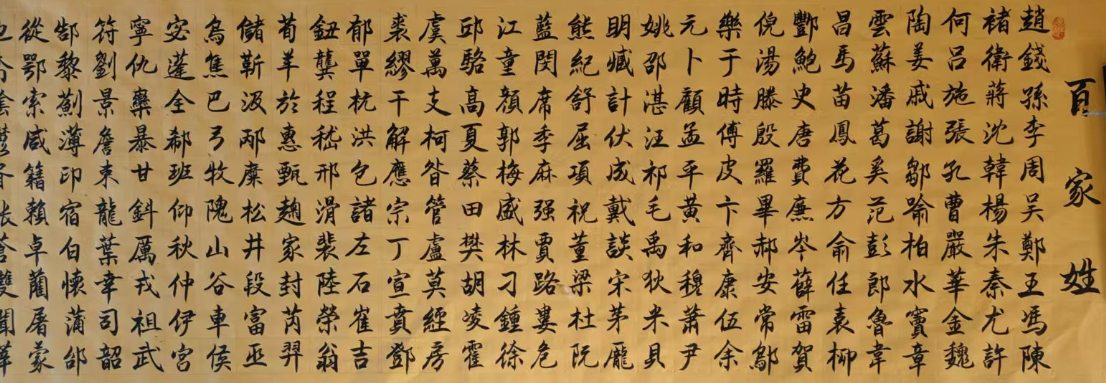 百家姓
趙錢孫李周吳鄭王馮陳
褚衛蔣沈韓楊朱秦尤許
何呂施張孔曹嚴華金魏
陶姜戚謝鄒喻柏水竇章
雲蘇潘葛奚范彭郎魯韋
昌馬苗鳳花方俞任袁柳
酆鮑史唐費廉岑薛雷賀
倪湯滕殷羅畢郝安常鄔
樂于時傅皮卞齊康伍余
元卜顧孟平黃和穆蕭尹
姚邵湛汪祁毛禹狄米貝
明臧計伏成戴談宋茅龐
熊紀舒屈項祝董梁杜阮
藍閔席季麻强賈路婁危
江童顏郭梅盛林刁鍾徐
邱駱髙夏蔡田樊胡凌霍
虞萬支柯昝管盧莫經房
裘繆干解應宗丁宣賁鄧
郁單杭洪包諸左石崔吉
鈕龔程嵇邢滑裴陸榮翁
荀羊於惠甄麴家封芮羿
儲靳汲邴糜松井段富巫
烏焦巴弓牧隗山谷車侯
宓蓬全郗班仰秋仲伊宮
寧仇欒暴甘鈄厲戎祖武
符劉景詹束龍葉幸司韶
郜黎薊薄印宿白懷蒲邰
從鄂索咸籍賴卓藺屠蒙